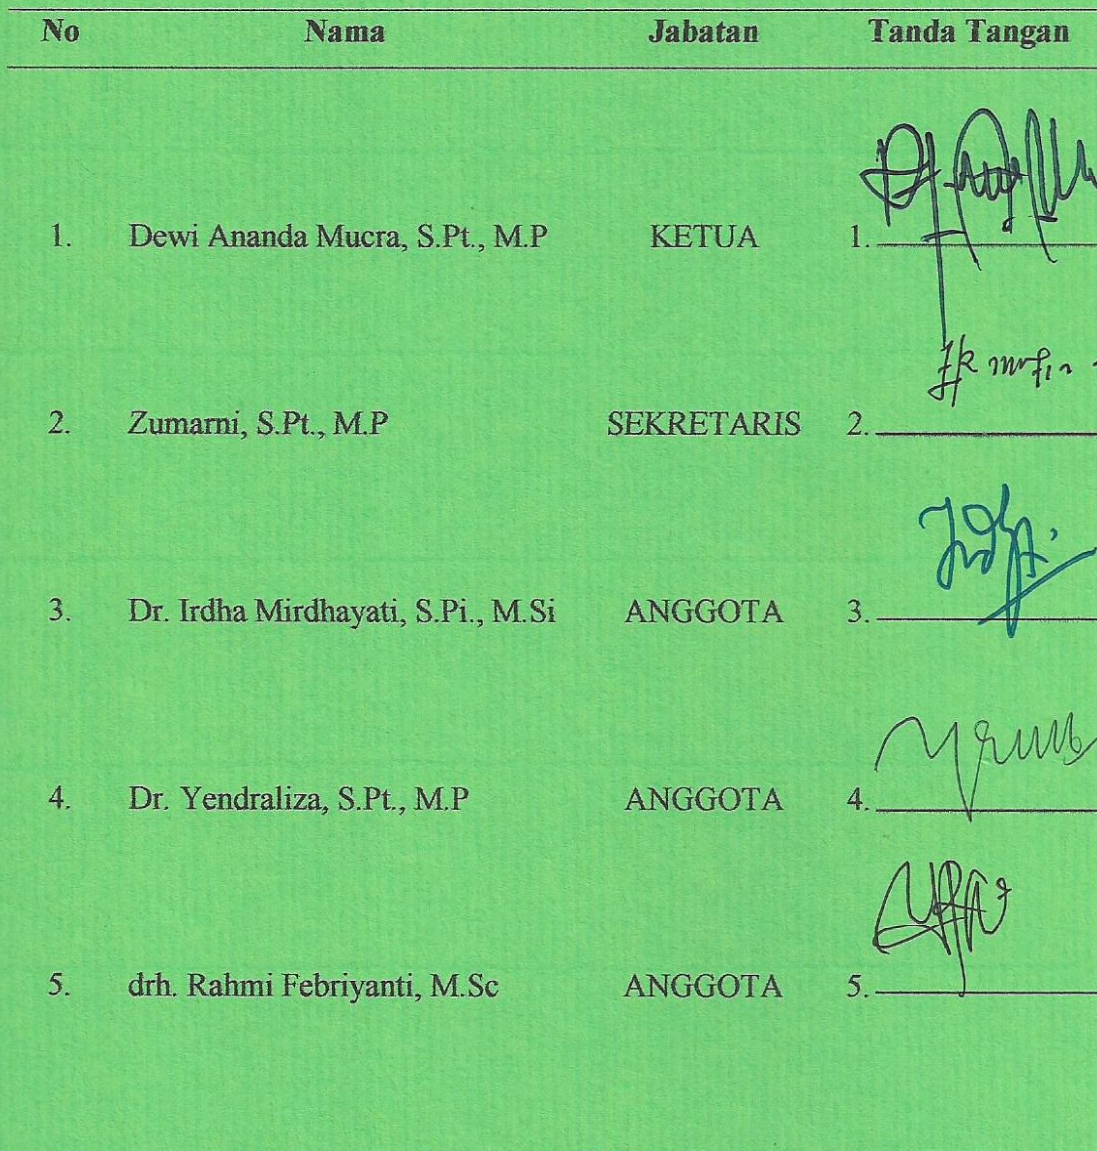 No Nama Jabatan Tanda Tangan
1. Dewi Ananda Mucra, S.Pt., M.P KETUA 1.
2. Zumarni, S.Pt., M.P SEKRETARIS 2.
3. Dr. Irdha Mirdhayati, S.Pi., M.Si ANGGOTA 3.
4. Dr. Yendraliza, S.Pt., M.P ANGGOTA 4.
5. drh. Rahmi Febriyanti, M.Sc ANGGOTA 5.